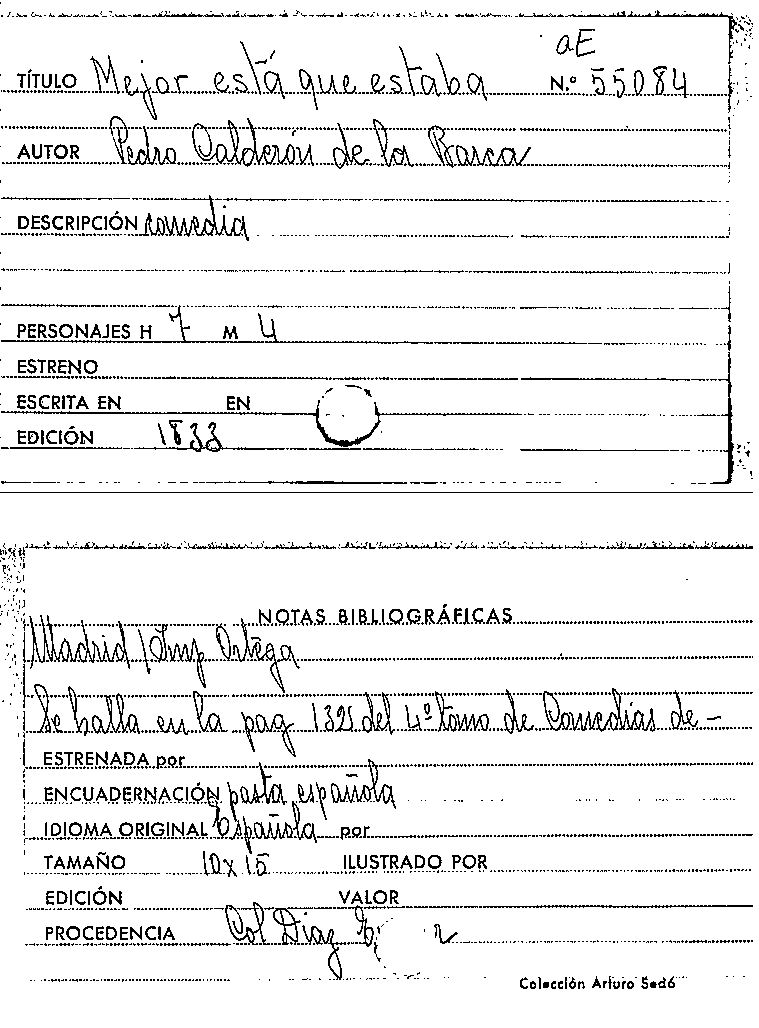 aE
TÍTULO Mejor está que estaba N.º 55084
AUTOR Pedro Calderón de la Barca
DESCRIPCIÓN comedia
PERSONAJES H 7 M 4
ESTRENO
ESCRITA EN EN
EDICIÓN 1833
NOTAS BIBLIOGRÁFICAS
Madrid / Imp Ortega
Se halla en la pag 132 del 4º tomo de Comedias de -
ESTRENADA por
ENCUADERNACIÓN pasta española
IDIOMA ORIGINAL Española por
TAMAÑO 10 x 15 ILUSTRADO POR
EDICIÓN VALOR
PROCEDENCIA Col Diaz
Colección Arturo Sedó